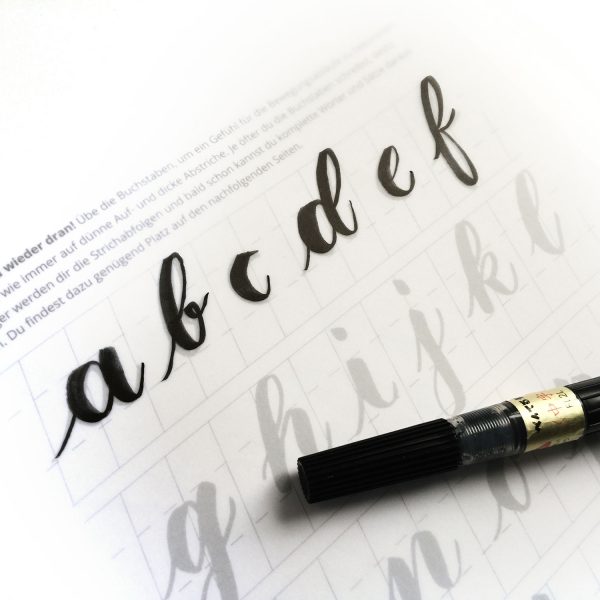 wieder dran! Übe die Buchstaben, um ein Gefühl für die
wie immer auf dünne Auf- und dicke Abstriche. Je öfter du die Buchstaben schreibst,
werden dir die Strichabfolgen und bald schon kannst du komplette Wörter und Sätze
Du findest dazu genügend Platz auf den nachfolgenden Seiten.
a b c d e f
g h i j k l
n o